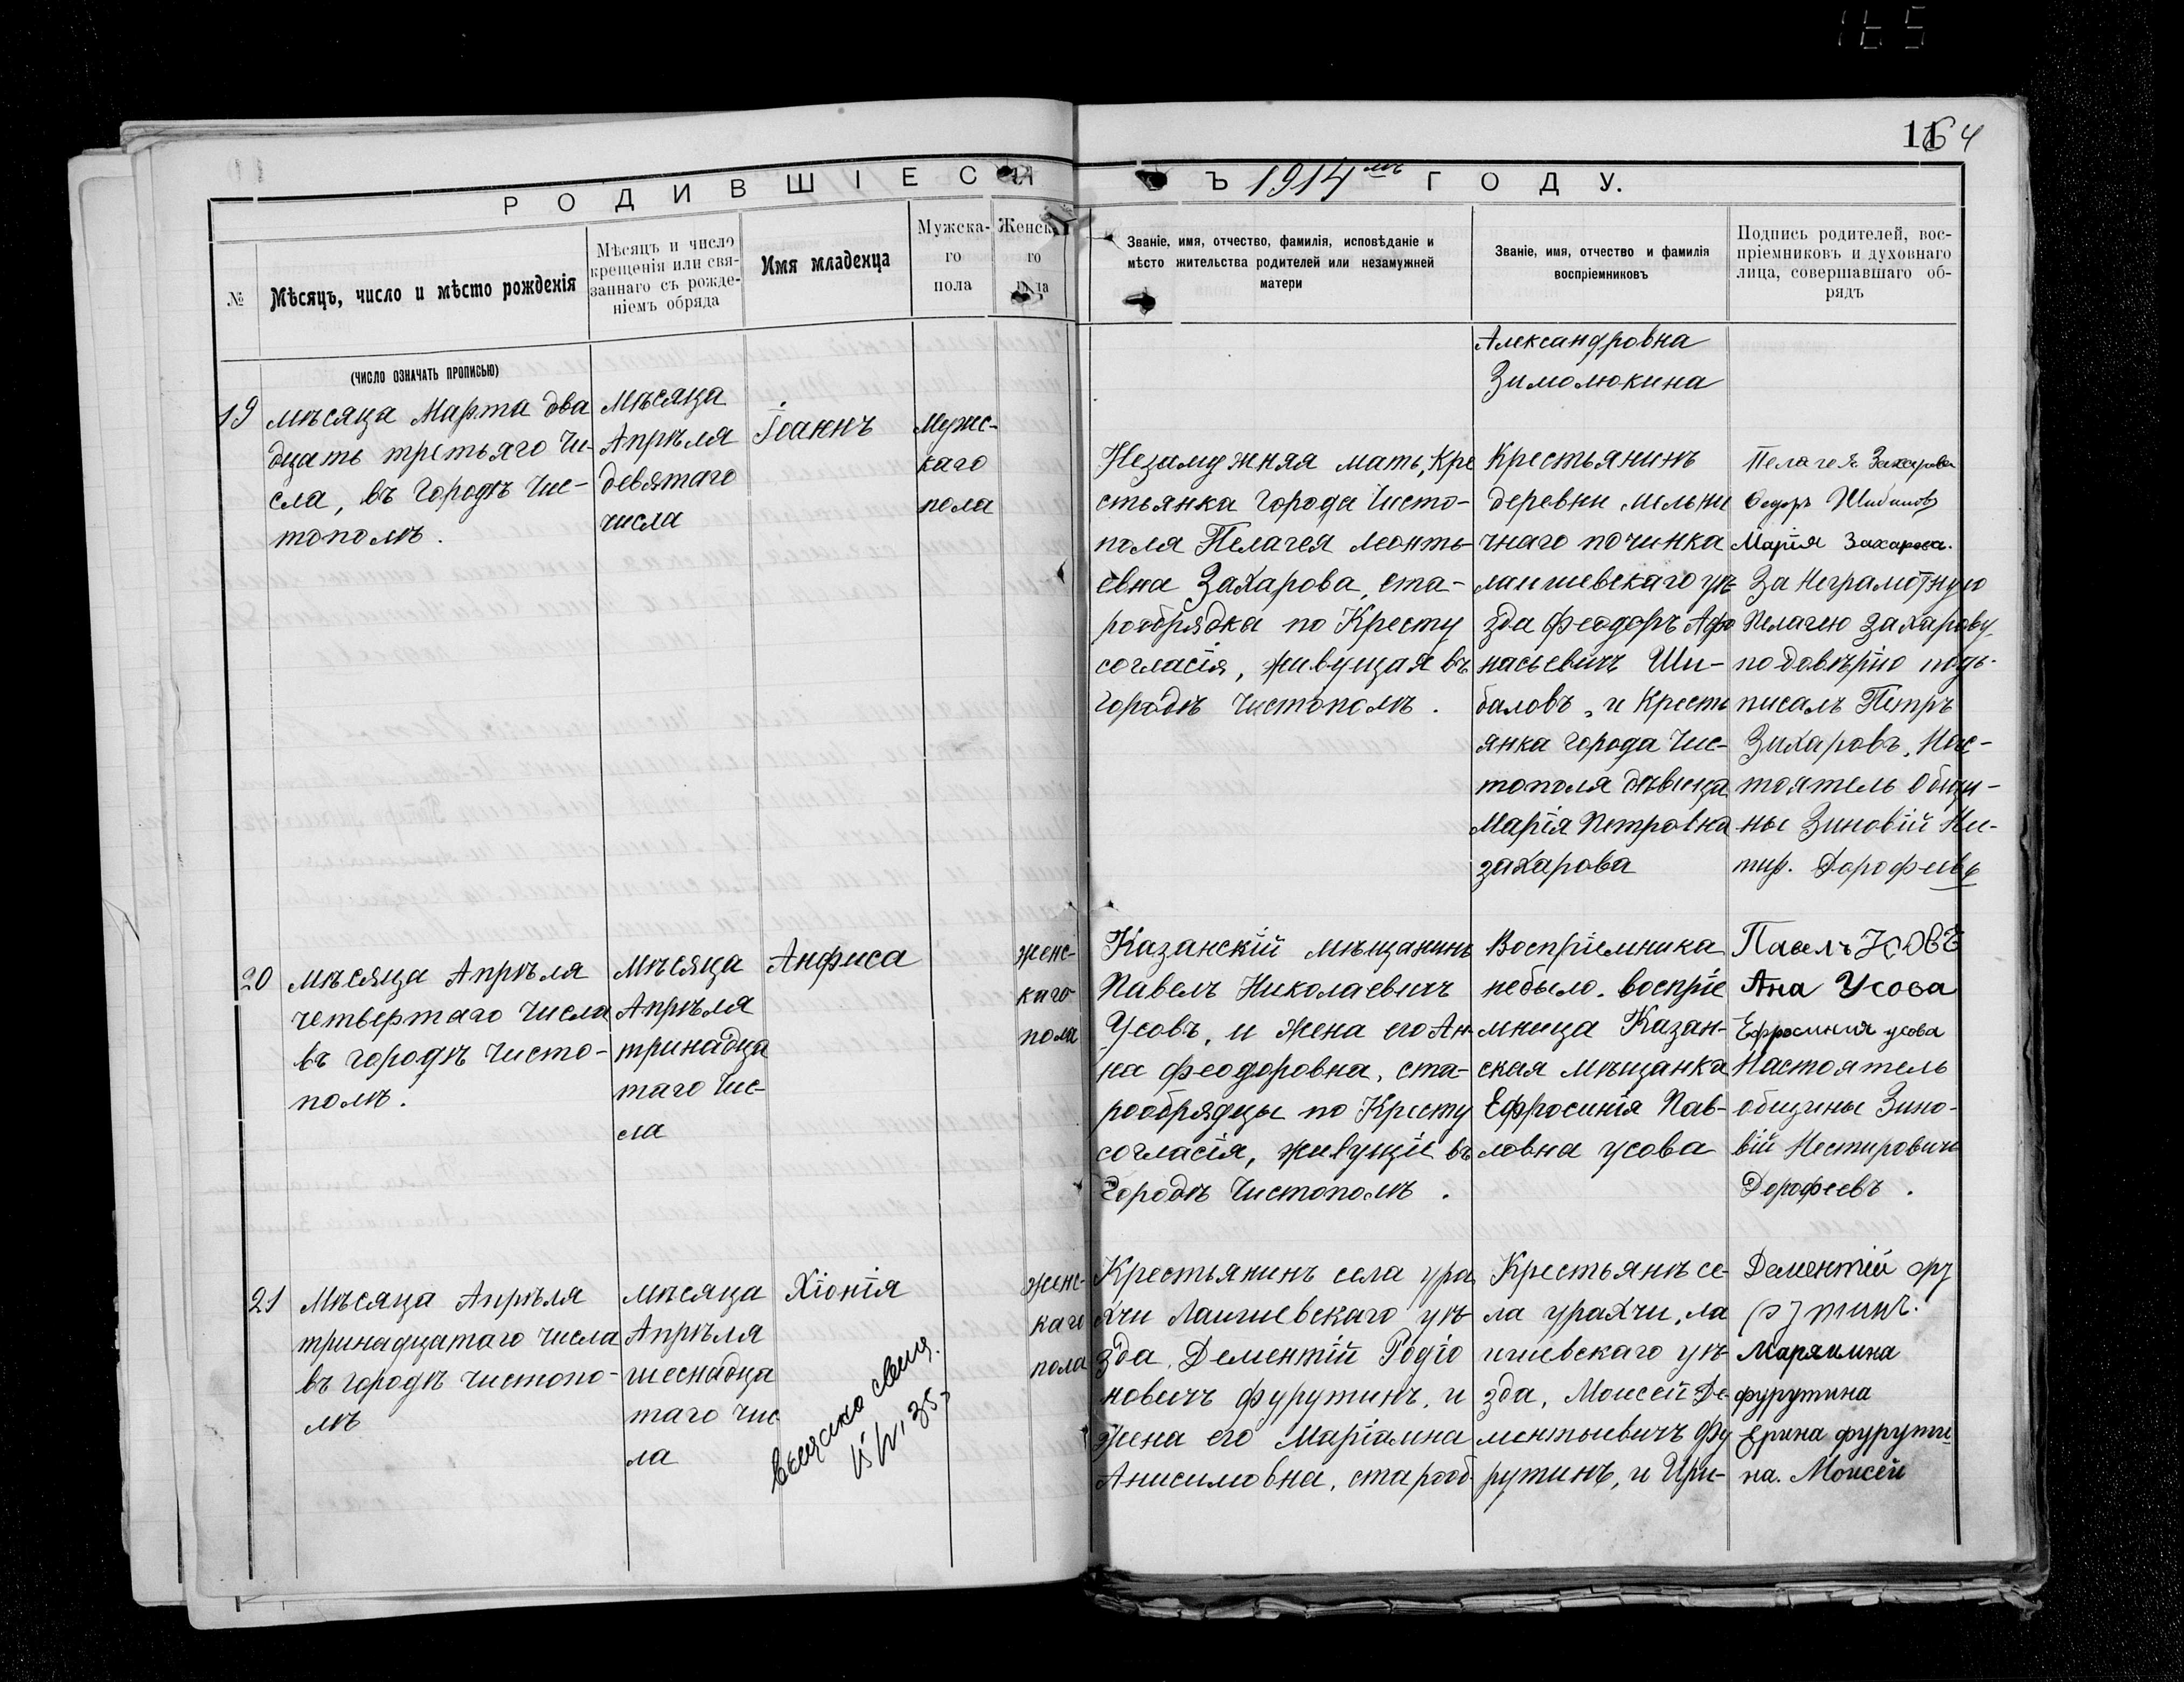 165
11
64
РОДИВШІЕСЯ
Ъ 1914 мъ ГОДУ.
№
Мѣсяцъ, число и мѣсто рожденія
Мѣсяцъ и число
крещенія или свя-
заннаго съ рожде-
ніемъ обряда
Имя младенца
Мужска-
го
пола
Женск
го
Званіе, имя, отчество, фамилія, исповѣданіе и
мѣсто жительства родителей или незамужней
матери
Званіе, имя, отчество и фамилія
воспріемниковъ
Подпись родителей, вос-
пріемниковъ и духовнаго
лица, совершавшаго об-
рядъ
(ЧИСЛО ОЗНАЧАТЬ ПРОПИСЬЮ)
Александровна
Зимолюкина
19
мѣсяца Марта два
дцать третьяго Чи-
сла, въ Городѣ Чис-
тополѣ.
Мѣсяца
Апрѣля
девятаго
числа
Іоаннъ
Мужс-
каго
пола
Незамужняя мать, Кре
стьянка Города Чисто-
поля Пелагея Леонть-
евна Захарова, ста-
рообрядка по Кресту
согласія, живущая въ
Городѣ Чистополѣ.
Крестьянинъ
деревни Мельни
чнаго починка
лаишевскаго уѣ
зда Феодоръ Афо
насьевичъ Ши-
баловъ, и Кресть
янка Города Чис-
тополя дѣвица
Марія Петровна
захарова
Пелагея Захарова
Федоръ Шибалов
Марія Захарова.
За Неграмотную
Пелагею Захарову
по довѣрію подъ-
писалъ Петръ
Захаровъ, Нас-
тоятель Общи-
ны Зиновій Не-
тир. Дорофеевъ
20
Мѣсяца Апрѣля
четвертаго Числа
въ городѣ Чисто-
полѣ.
Мѣсяца
Апрѣля
тринадца
таго Чис-
ла
Анфиса
женс-
каго
пола
Казанскій мѣщанинъ
Павелъ Николаевичъ
Усовъ, и жена его Ан-
на Феодоровна, ста-
рообрядцы по Кресту
согласія, живущіе въ
Городѣ Чистополѣ.
Воспріемника
небыло. воспріе
мница Казан-
ская мѣщанка
Ефросинія Пав-
ловна усова
Павлъ УСОВЪ
Ана Усова
Ефросиния усова
Настоятель
общины Зино-
вій Нестировичъ
Дорофеевъ.
21
Мѣсяца Апрѣля
тринадцатаго числа
въ городѣ Чистопо-
лѣ
мѣсяца
Апрѣля
шеснадца
таго чис
ла
Хіонія
женс-
каго
пола
Крестьянинъ села ура
хчи Лаишевскаго уѣ
зда, Дементій Родіо
новичъ фурутинъ, и
жена его Маріамна
Анисимовна, старооб
Крестьянѣ се-
ла урахчи, ла
ишевскаго уѣ-
зда, Моисей Де-
ментьевичъ Фу
рутинъ, и Ири-
Дементій фу
тинъ.
Маряимна
фурутина
Ерина фурути
на. Моисей